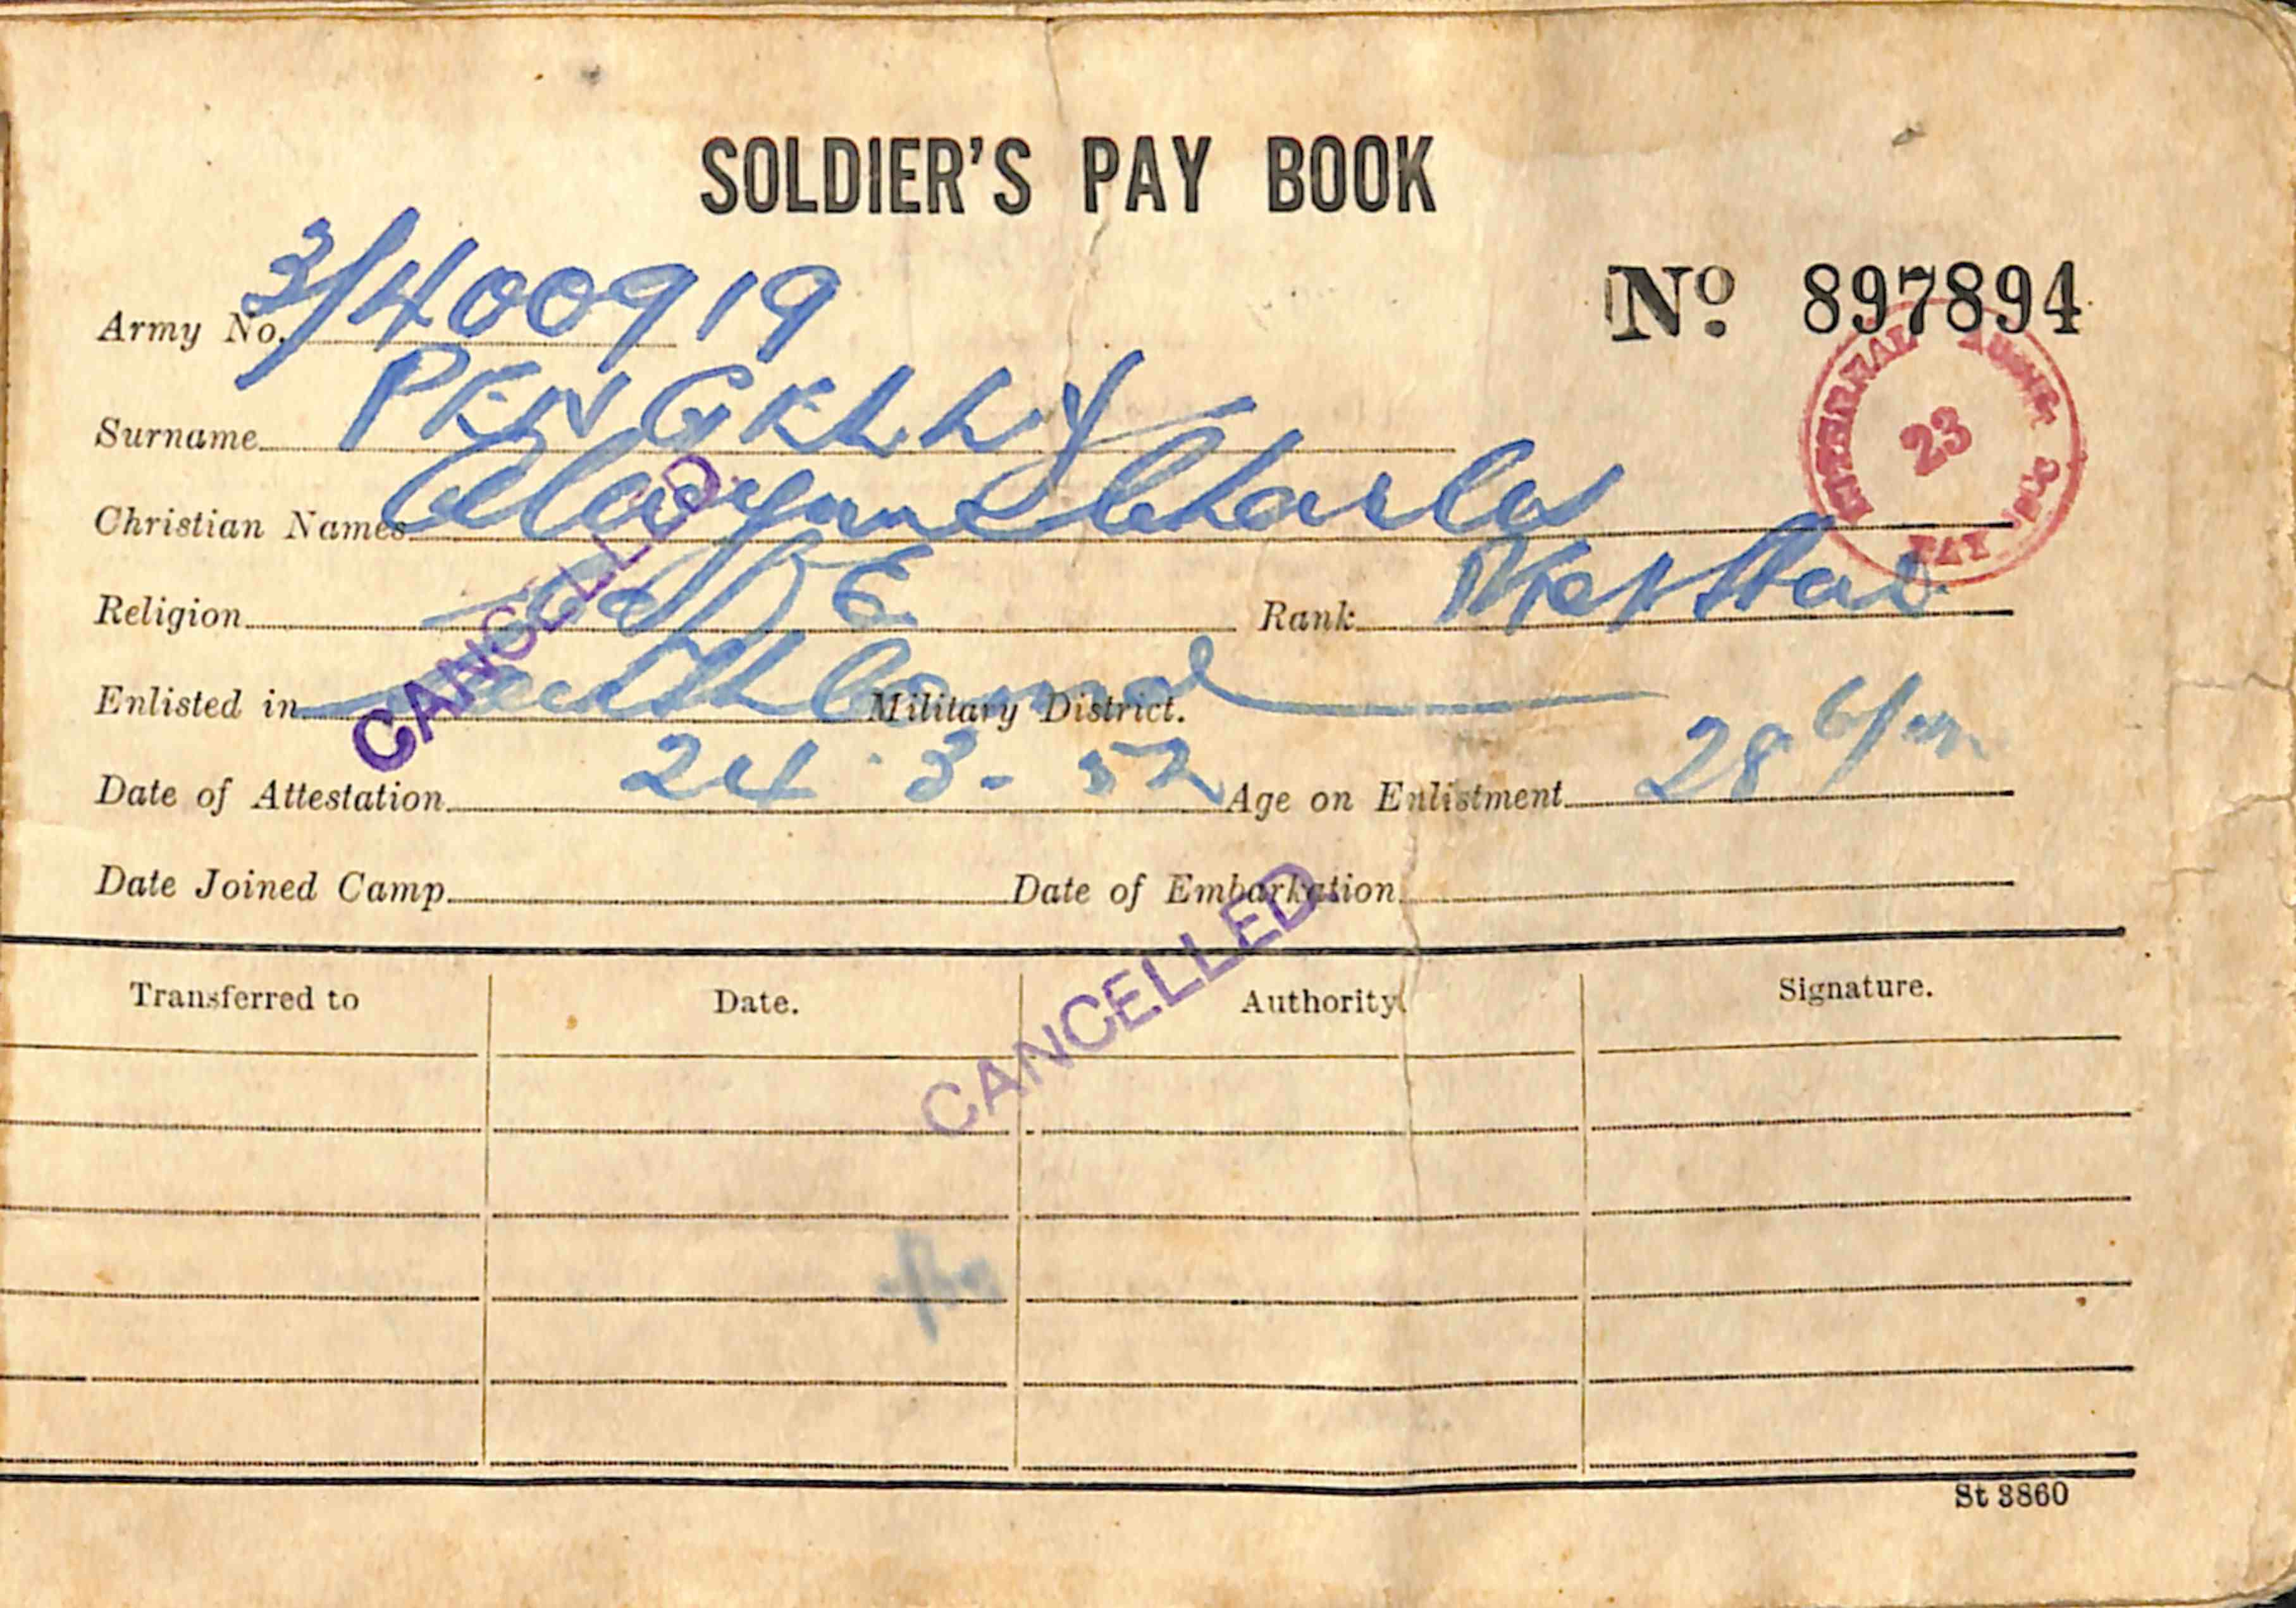 SOLDIER'S PAY BOOK
Army No. 3/400919
Nº 897894
Surname PENGELLY
Christian Names Charles
INTERNAL AUDIT 23 PAY
Religion C of E Rank
CANCELLED
Enlisted in South Comd Military District.
Date of Attestation 24·3-52 Age on Enlistment 28
Date Joined Camp Date of Embarkation
CANCELLED
Transferred to Date. Authority Signature.
St 3860